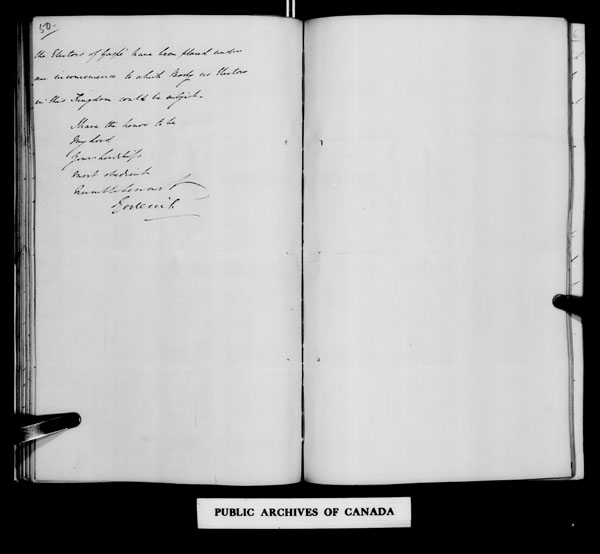 50.
the Electors of Gaspé have been placed under
an inconvenience to which no Electors
in this Kingdom could be subject.
I have the honor to be
My Lord
Your Lordship's
most obedient
humble Servant
Goderich
PUBLIC ARCHIVES OF CANADA